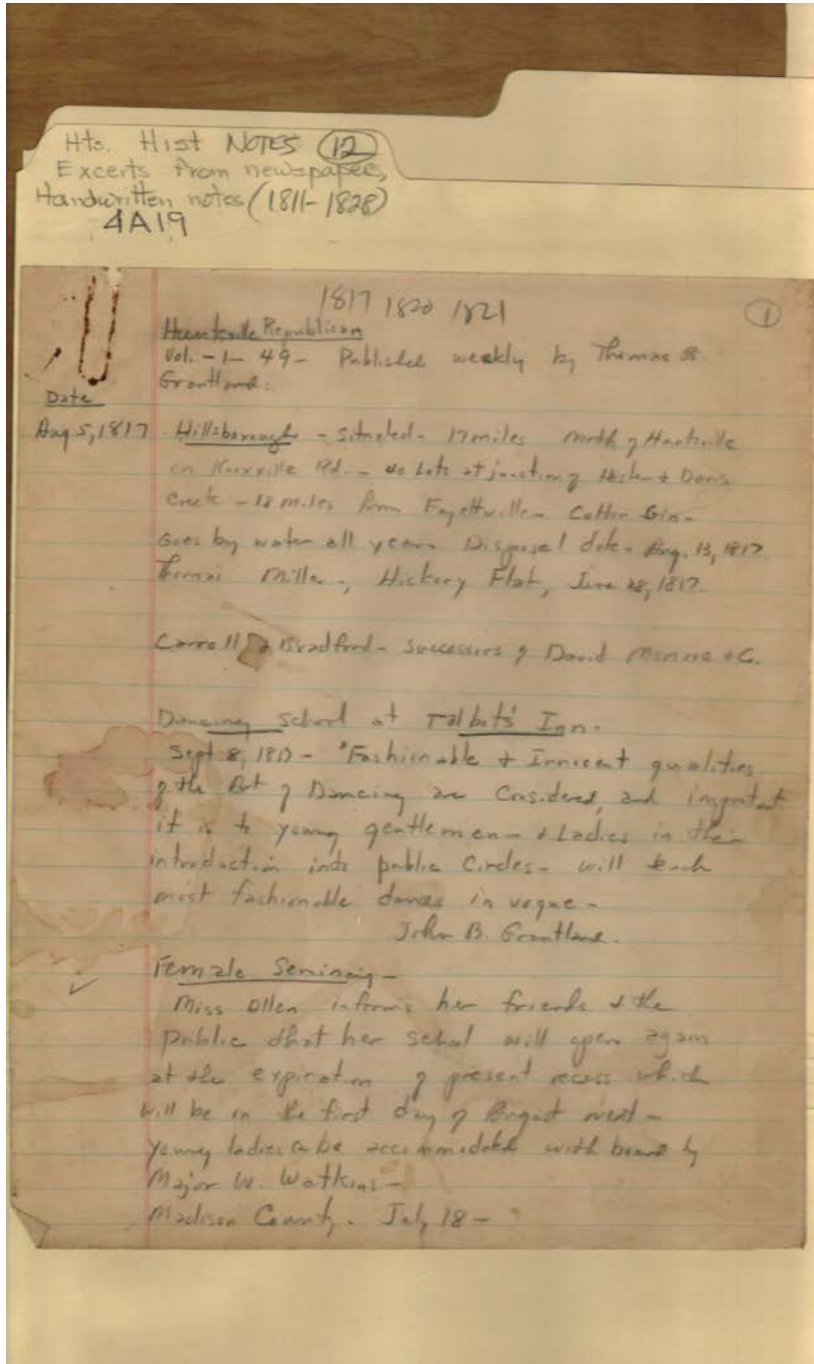 Hts. Hist NOTES 12
Excerts from newspapers,
Handwritten notes (1811-1828)
4A19
1817 1820 1821
1
Huntsville Republican
Vol. -1- 49- Published weekly by Thomas B
Grantland.
Date
Aug 5, 1817 Hillsborough - situated - 17 miles north of Huntsville
on Knoxville Rd. - lots at junction of & Davis
Creek - 18 miles from Fayetteville - Cotton Gin -
Goes by water all year. Disposal date - Aug. 13, 1817
Thomas Miller, Hickory Flat, June 28, 1817.
Carroll & Bradford - successors of David & Co.
Dancing school at Talbot's Inn -
Sept 8, 1817 - "Fashionable & Innocent qualities
of the Art of Dancing are Considered, and important
it is to young gentlemen - & Ladies in their
introduction into public Circles - will teach
most fashionable dances in vogue -
John B. Grantland.
Female Seminary -
Miss Ollen informs her friends & the
public that her school will open again
at the expiration of present recess which
will be on the first day of August next -
young ladies can be accommodated with board by
Major W. Watkins -
Madison County. July 18 -